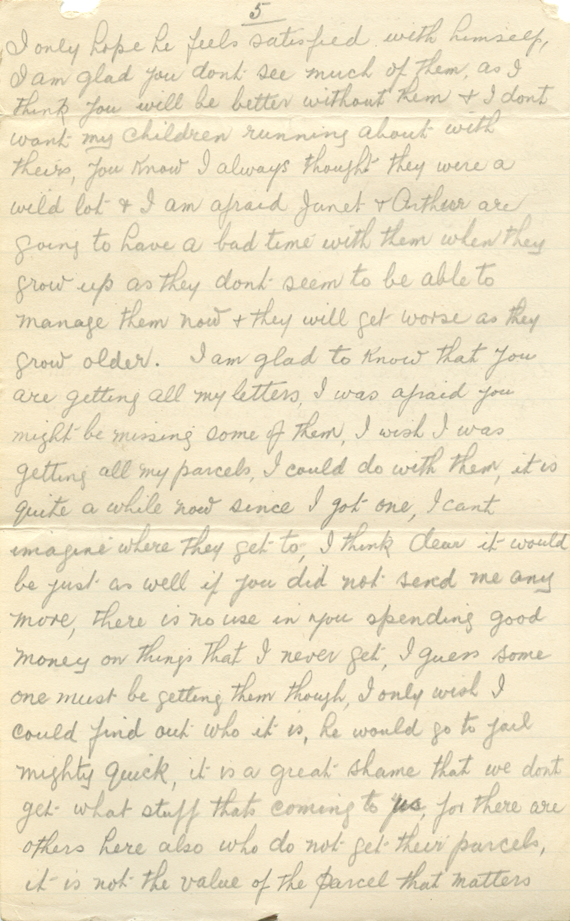 5
I only hope he feels satisfied with himself,
I am glad you dont see much of them, as I
think you will be better without them & I dont
want my children running about with
theirs, you know I always thought they were a
wild lot & I am afraid Junet & Arthur are
going to have a bad time with them when they
grow up as they dont seem to be able to
manage them now & they will get worse as they
grow older. I am glad to know that you
are getting all my letters, I was afraid you
might be missing some of them, I wish I was
getting all my parcels, I could do with them, it is
quite a while now since I got one, I cant
imagine where they get to, I think dear it would
be just as well if you did not send me any
more, there is no use in you spending good
money on things that I never get, I guess some
one must be getting them though, I only wish I
could find out who it is, he would go to jail
mighty quick, it is a great shame that we dont
get what stuff thats coming to us, for there are
others here also who do not get their parcels,
it is not the value of the parcel that matters